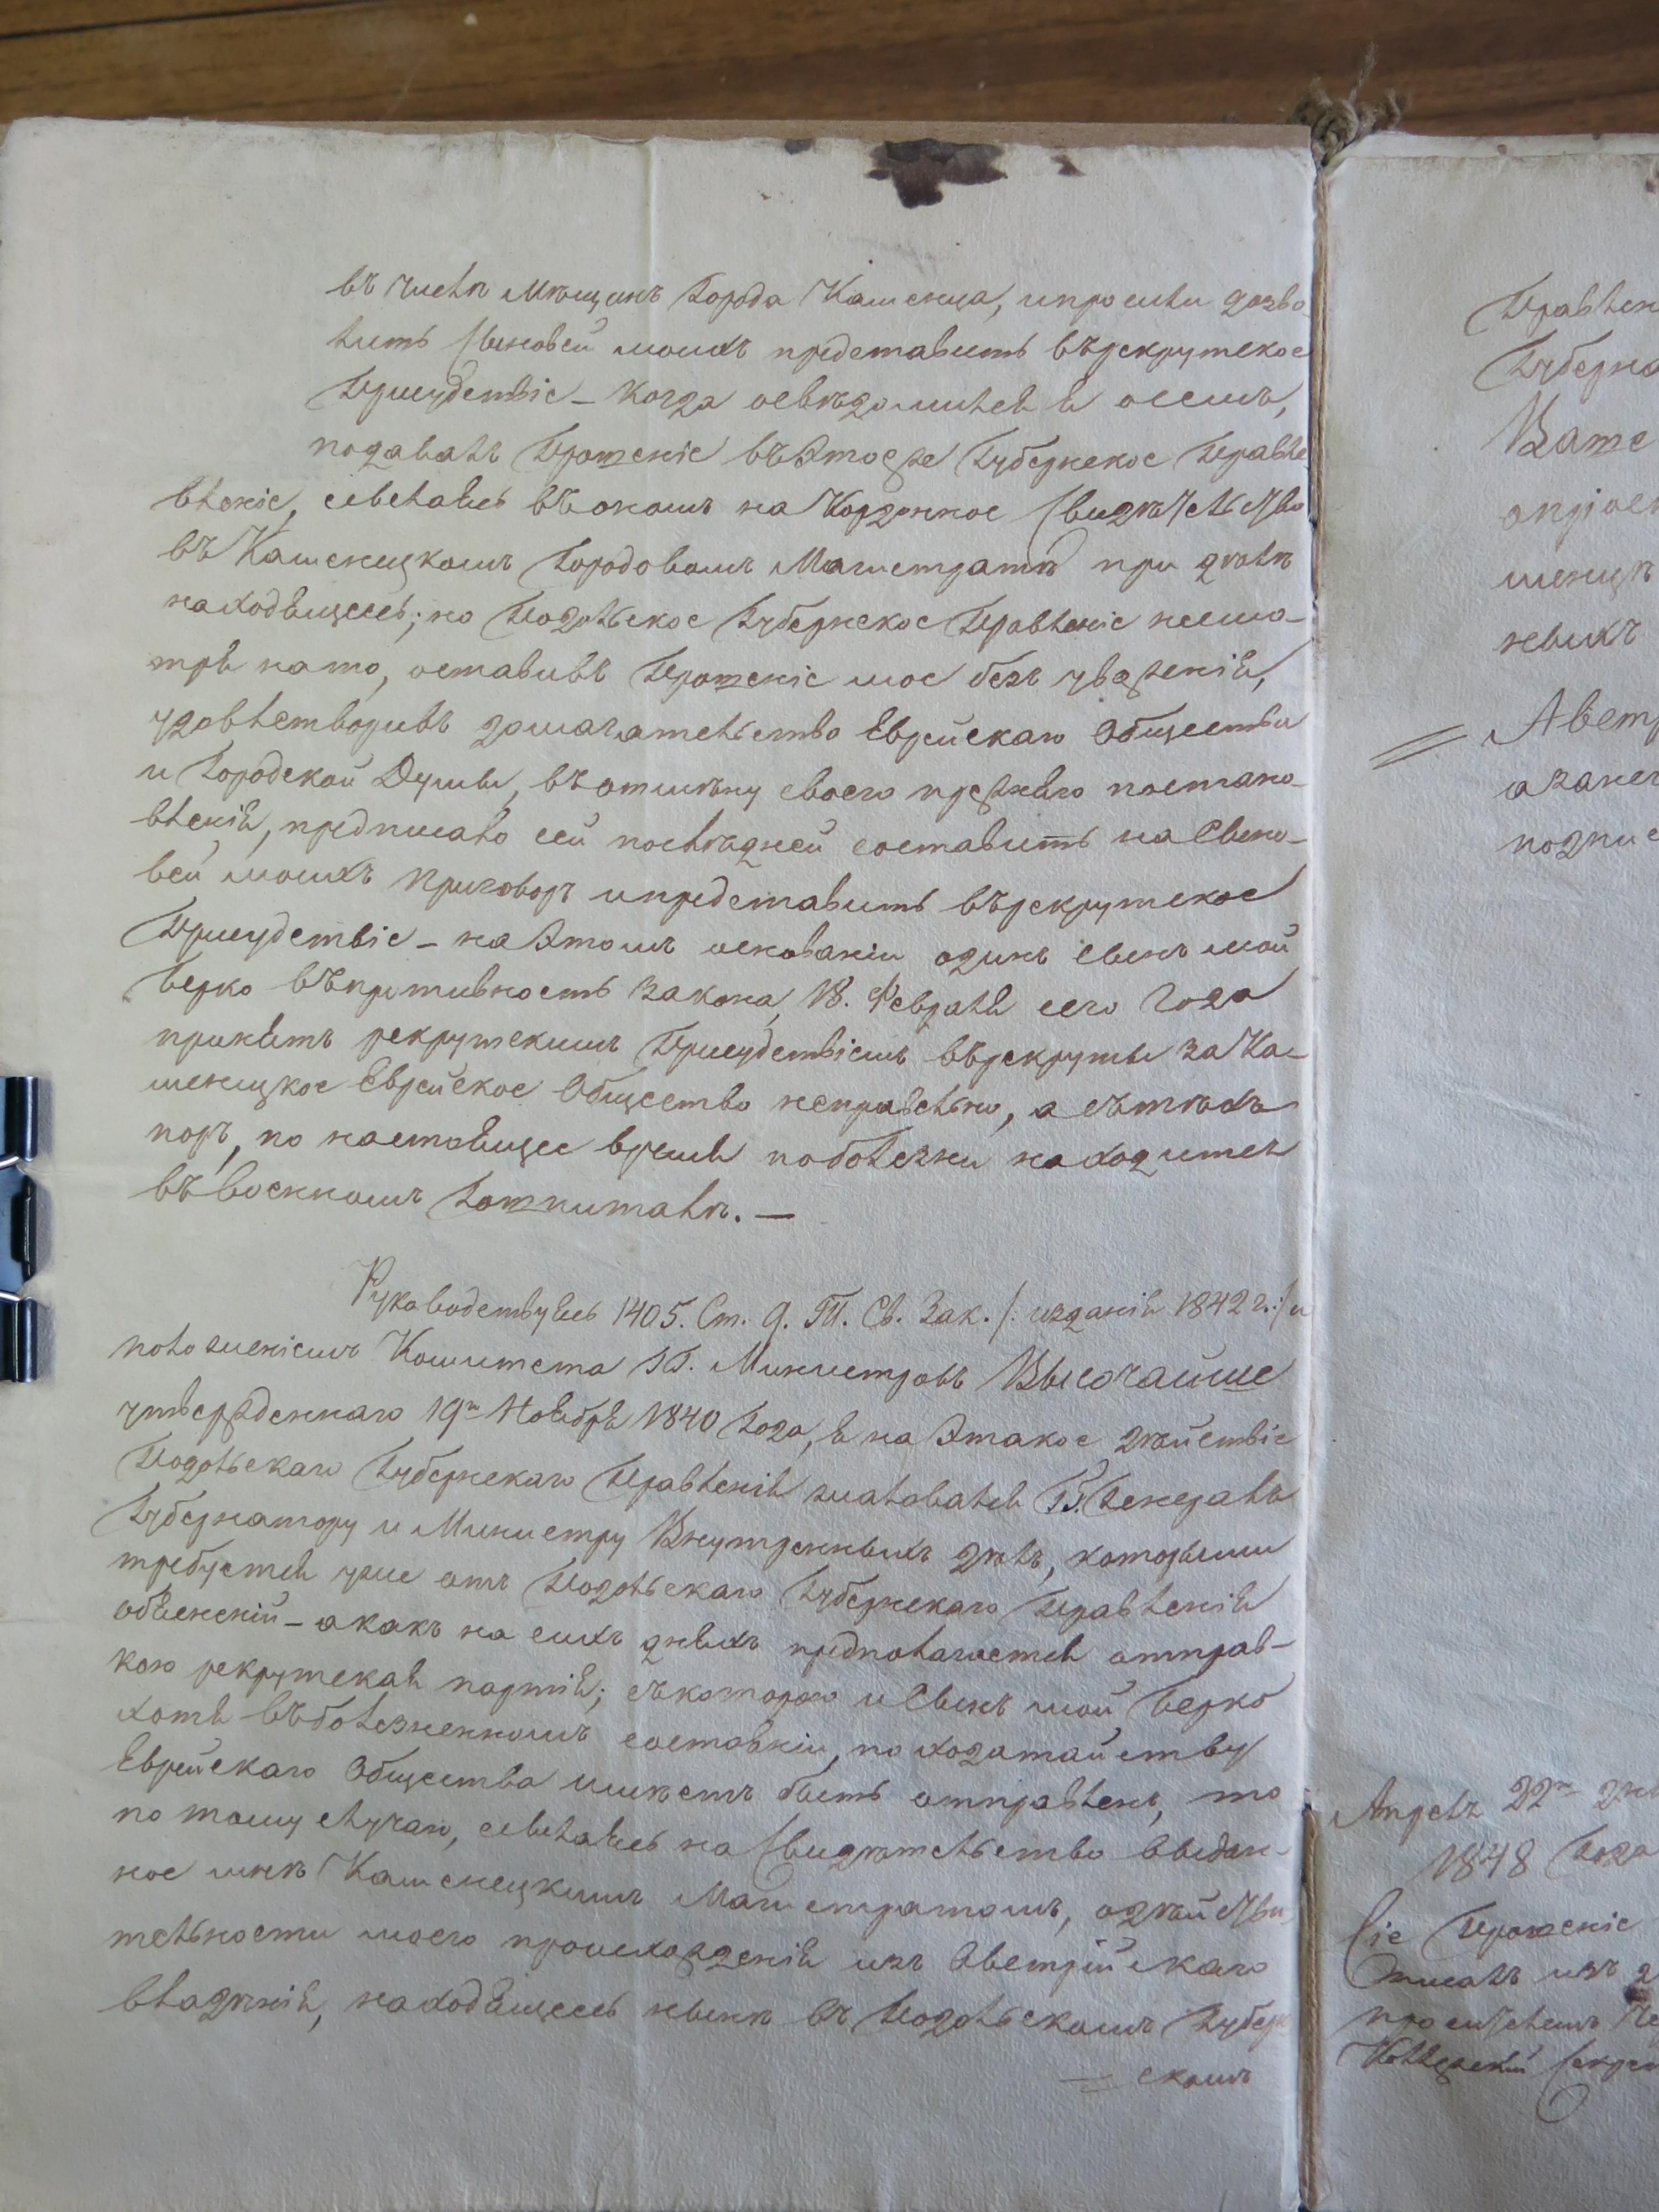 въ числѣ Мѣщанъ Города Каменца, и просили дозво-
лить Сыновей моихъ представить въ рекрутское
Присудствіе – когда освѣдомился я о семъ,
подавалъ Прошеніе въ Этоеже Губернское Правле-
вленіе, ссылаясь въ ономъ на Кордонное Свидѣтельство
въ Каменецкомъ Городовомъ Магистратѣ при дѣлѣ
находящееся; но Подольское Губернское Правленіе несмо-
тря на то, оставивъ Прошеніе мое безъ уваженія,
удовлетворивъ домагательство Еврейскаго Общества
и Городской Думы, въ отмѣну своего прежняго постано-
вленія, предписало сей послѣдней составить на Сыно-
вей моихъ приговоръ и представить въ рекрутское
Присудствіе – на Этомъ основаніи одинъ сынъ мой
Берко въ противность закона, 18. Февраля сего Года
принятъ рекрутскимъ Присудствіемъ въ рекруты за Ка-
менецкое Еврейское Общество неправильно, а съ тѣхъ
поръ, по настоящее время по болезни находится
въ военномъ Гошпиталѣ. —
Руководствуясь 1405. Ст. 9. Т. Св. Зак. /: изданія 1842 г.:/ и
положеніемъ Комитета ГГ. Министровъ Высочайше
утвержденнаго 19го Ноября 1840 Года, я на Этакое дѣйствіе
Подольскаго Губернскаго Правленія жаловался Г. Генералъ
Губернатору и Министру Внутренныхъ дѣлъ, которыми
требуется уже отъ Подольскаго Губернскаго Правленія
объясненій – а какъ на сихъ дняхъ предполагается отправ-
кою рекрутская партія; съ которою и Сынъ мой Берко
хотя въ болезненномъ состояніи, по ходатайству
Еврейскаго Общества имѣетъ быть отправленъ, то
по тому случаю, ссылаясь на Свидѣтельство выдан-
ное мнѣ Каменецкимъ Магистратомъ, о дѣйстви-
тельности моего происхожденія изъ Австрійскаго
владѣнія, находящееся нынѣ въ Подольскомъ Губерн
= скомъ
Правлен
Губерна
Ваше
менцѣ
ныхъ
= Австр
подпис
Апрель 22го дня
1848 Года
Сіе Прошеніе